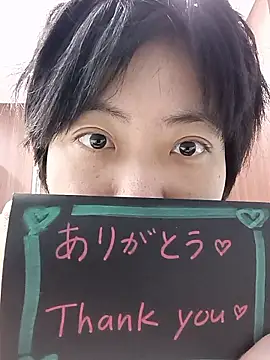 ありがとう♡
Thank you♡